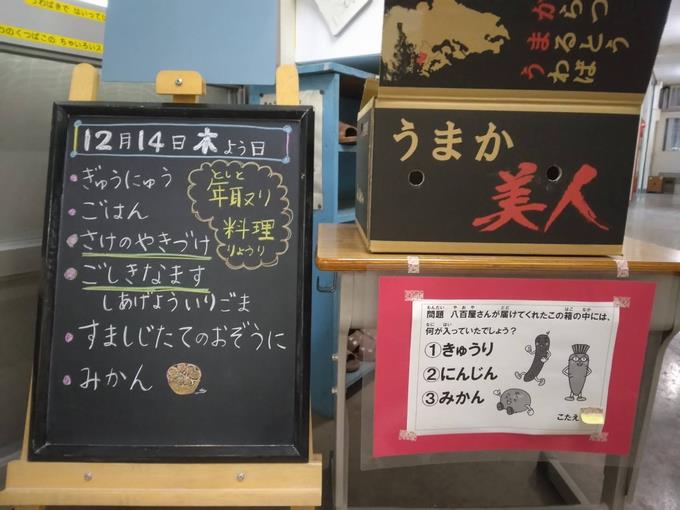 うわばきで はいって
わのくつばこの ちゃいろいス
12月14日木よう日
ぎゅうにゅう
ごはん
さけのやきづけ
ごしきなます
しあげよういりごま
すましじたてのおぞうに
みかん
としと
年取り
料理
りょうり
からつ
まるとう
うわば
うまか
美人
もんだい やおや とど はこ なか
問題 八百屋さんが届けてくれたこの箱の中には、
なに はい
何が入っていたでしょう？
①きゅうり
②にんじん
③みかん
こたえ